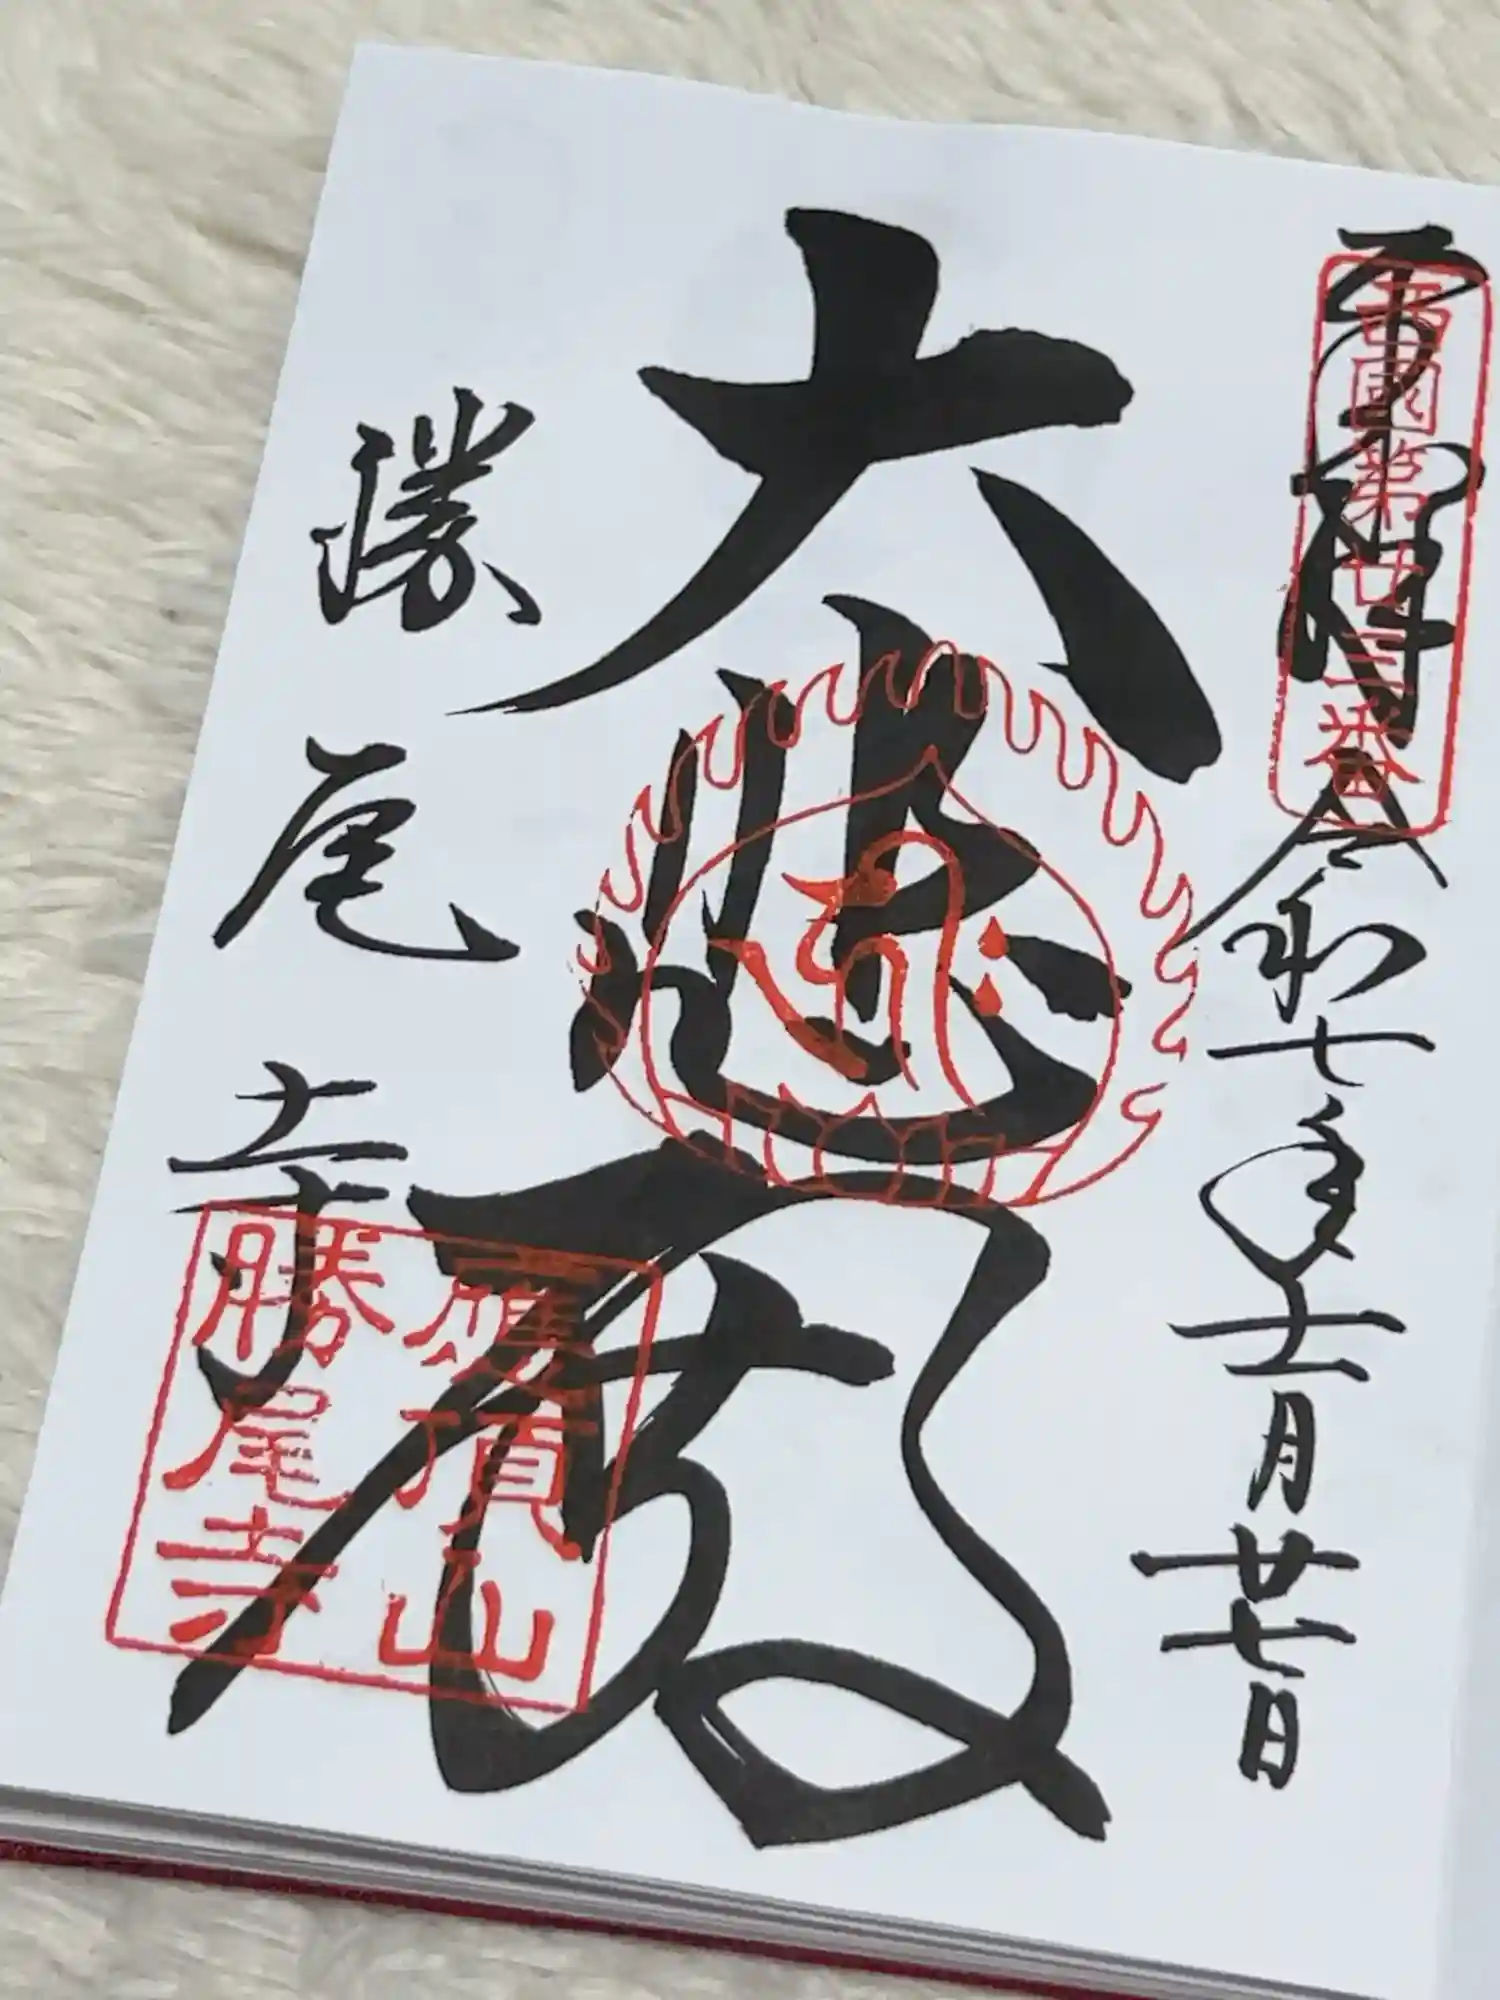 奉拝
令和七年十一月廿七日
西國第廿三番
大悲殿
勝尾寺
應頂山
勝尾寺